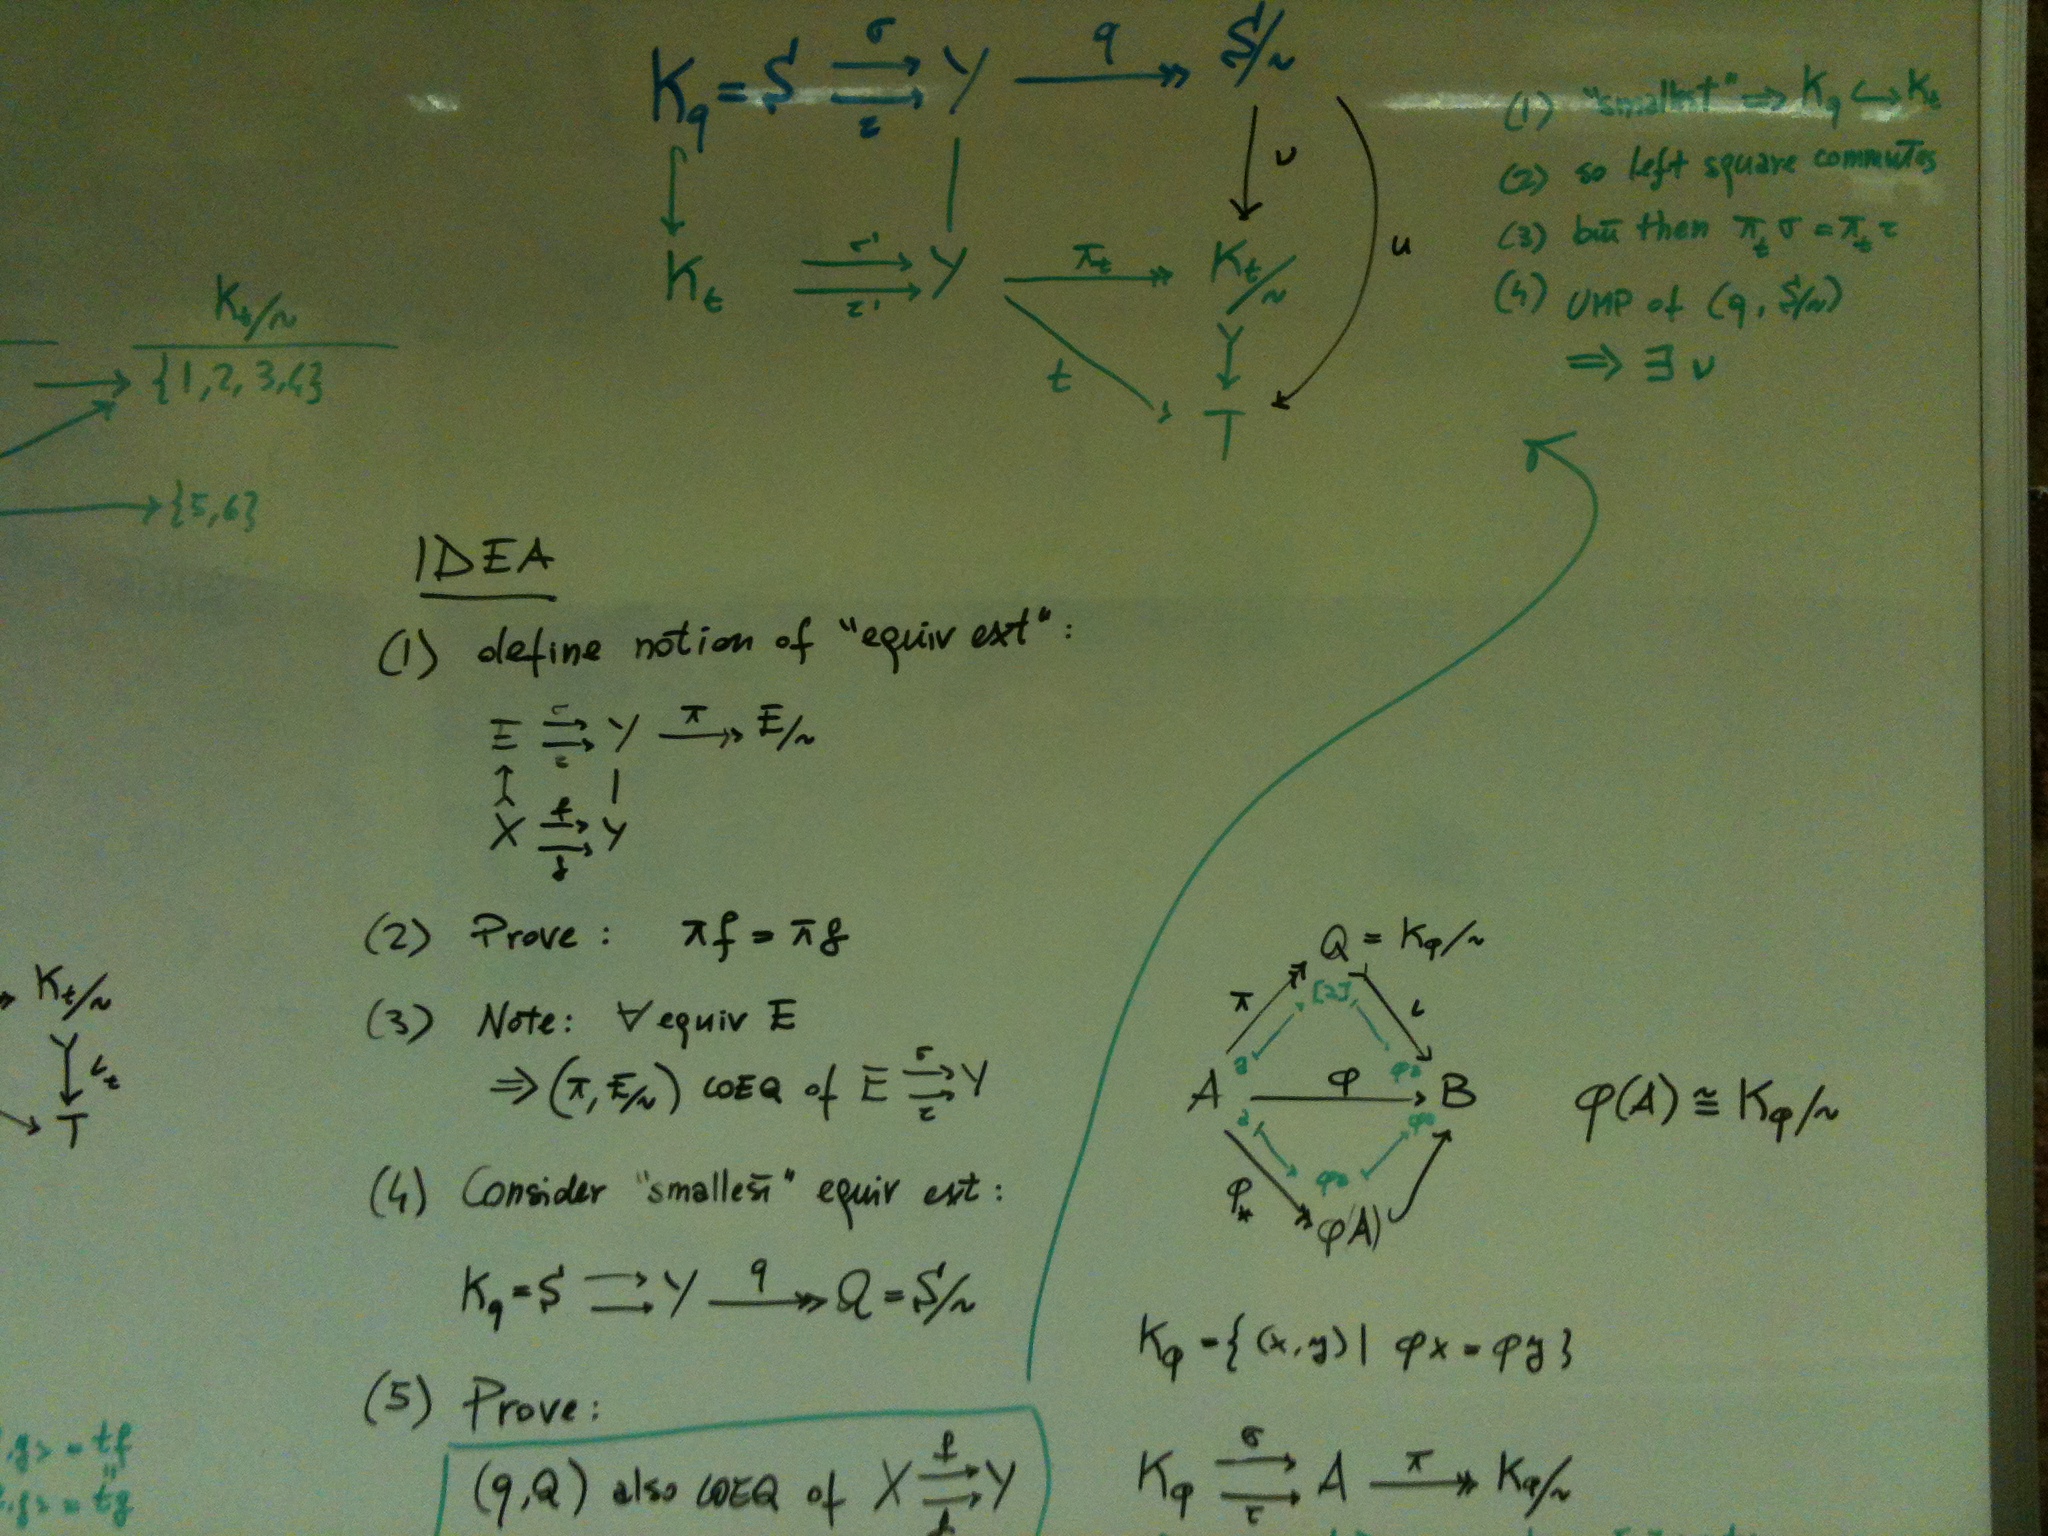 K_q = S ⇉ Y ↠ S/~
σ
τ
q
ν
u
K_t ⇉ Y ↠ K_t/~
σ'
τ'
π_t
t
T
(1) "smallest" ⇒ K_q ↪ K_t
(2) so left square commutes
(3) but then π_t σ = π_t τ
(4) UMP of (q, S/~)
⇒ ∃ ν
K_t/~
{1,2,3,4}
{5,6}
IDEA
(1) define notion of "equiv ext":
E ⇉ Y ↠ E/~
σ
τ
π
X ⇉ Y
f
g
(2) Prove: πf = πg
(3) Note: ∀ equiv E
⇒ (π, E/~) COEQ of E ⇉ Y
σ
τ
(4) Consider "smallest" equiv ext:
K_q = S ⇉ Y ↠ Q = S/~
q
(5) Prove:
(q,Q) also COEQ of X ⇉ Y
f
K_t/~
ι_t
T
g> = tf
g> = tg
Q = K_φ/~
π
[a]
ι
a
φa
A → B
φ
a
φa
φa
φ_*
φ(A)
φ(A) ≅ K_φ/~
K_φ = { (x,y) | φx = φy }
K_φ ⇉ A ↠ K_φ/~
σ
τ
π